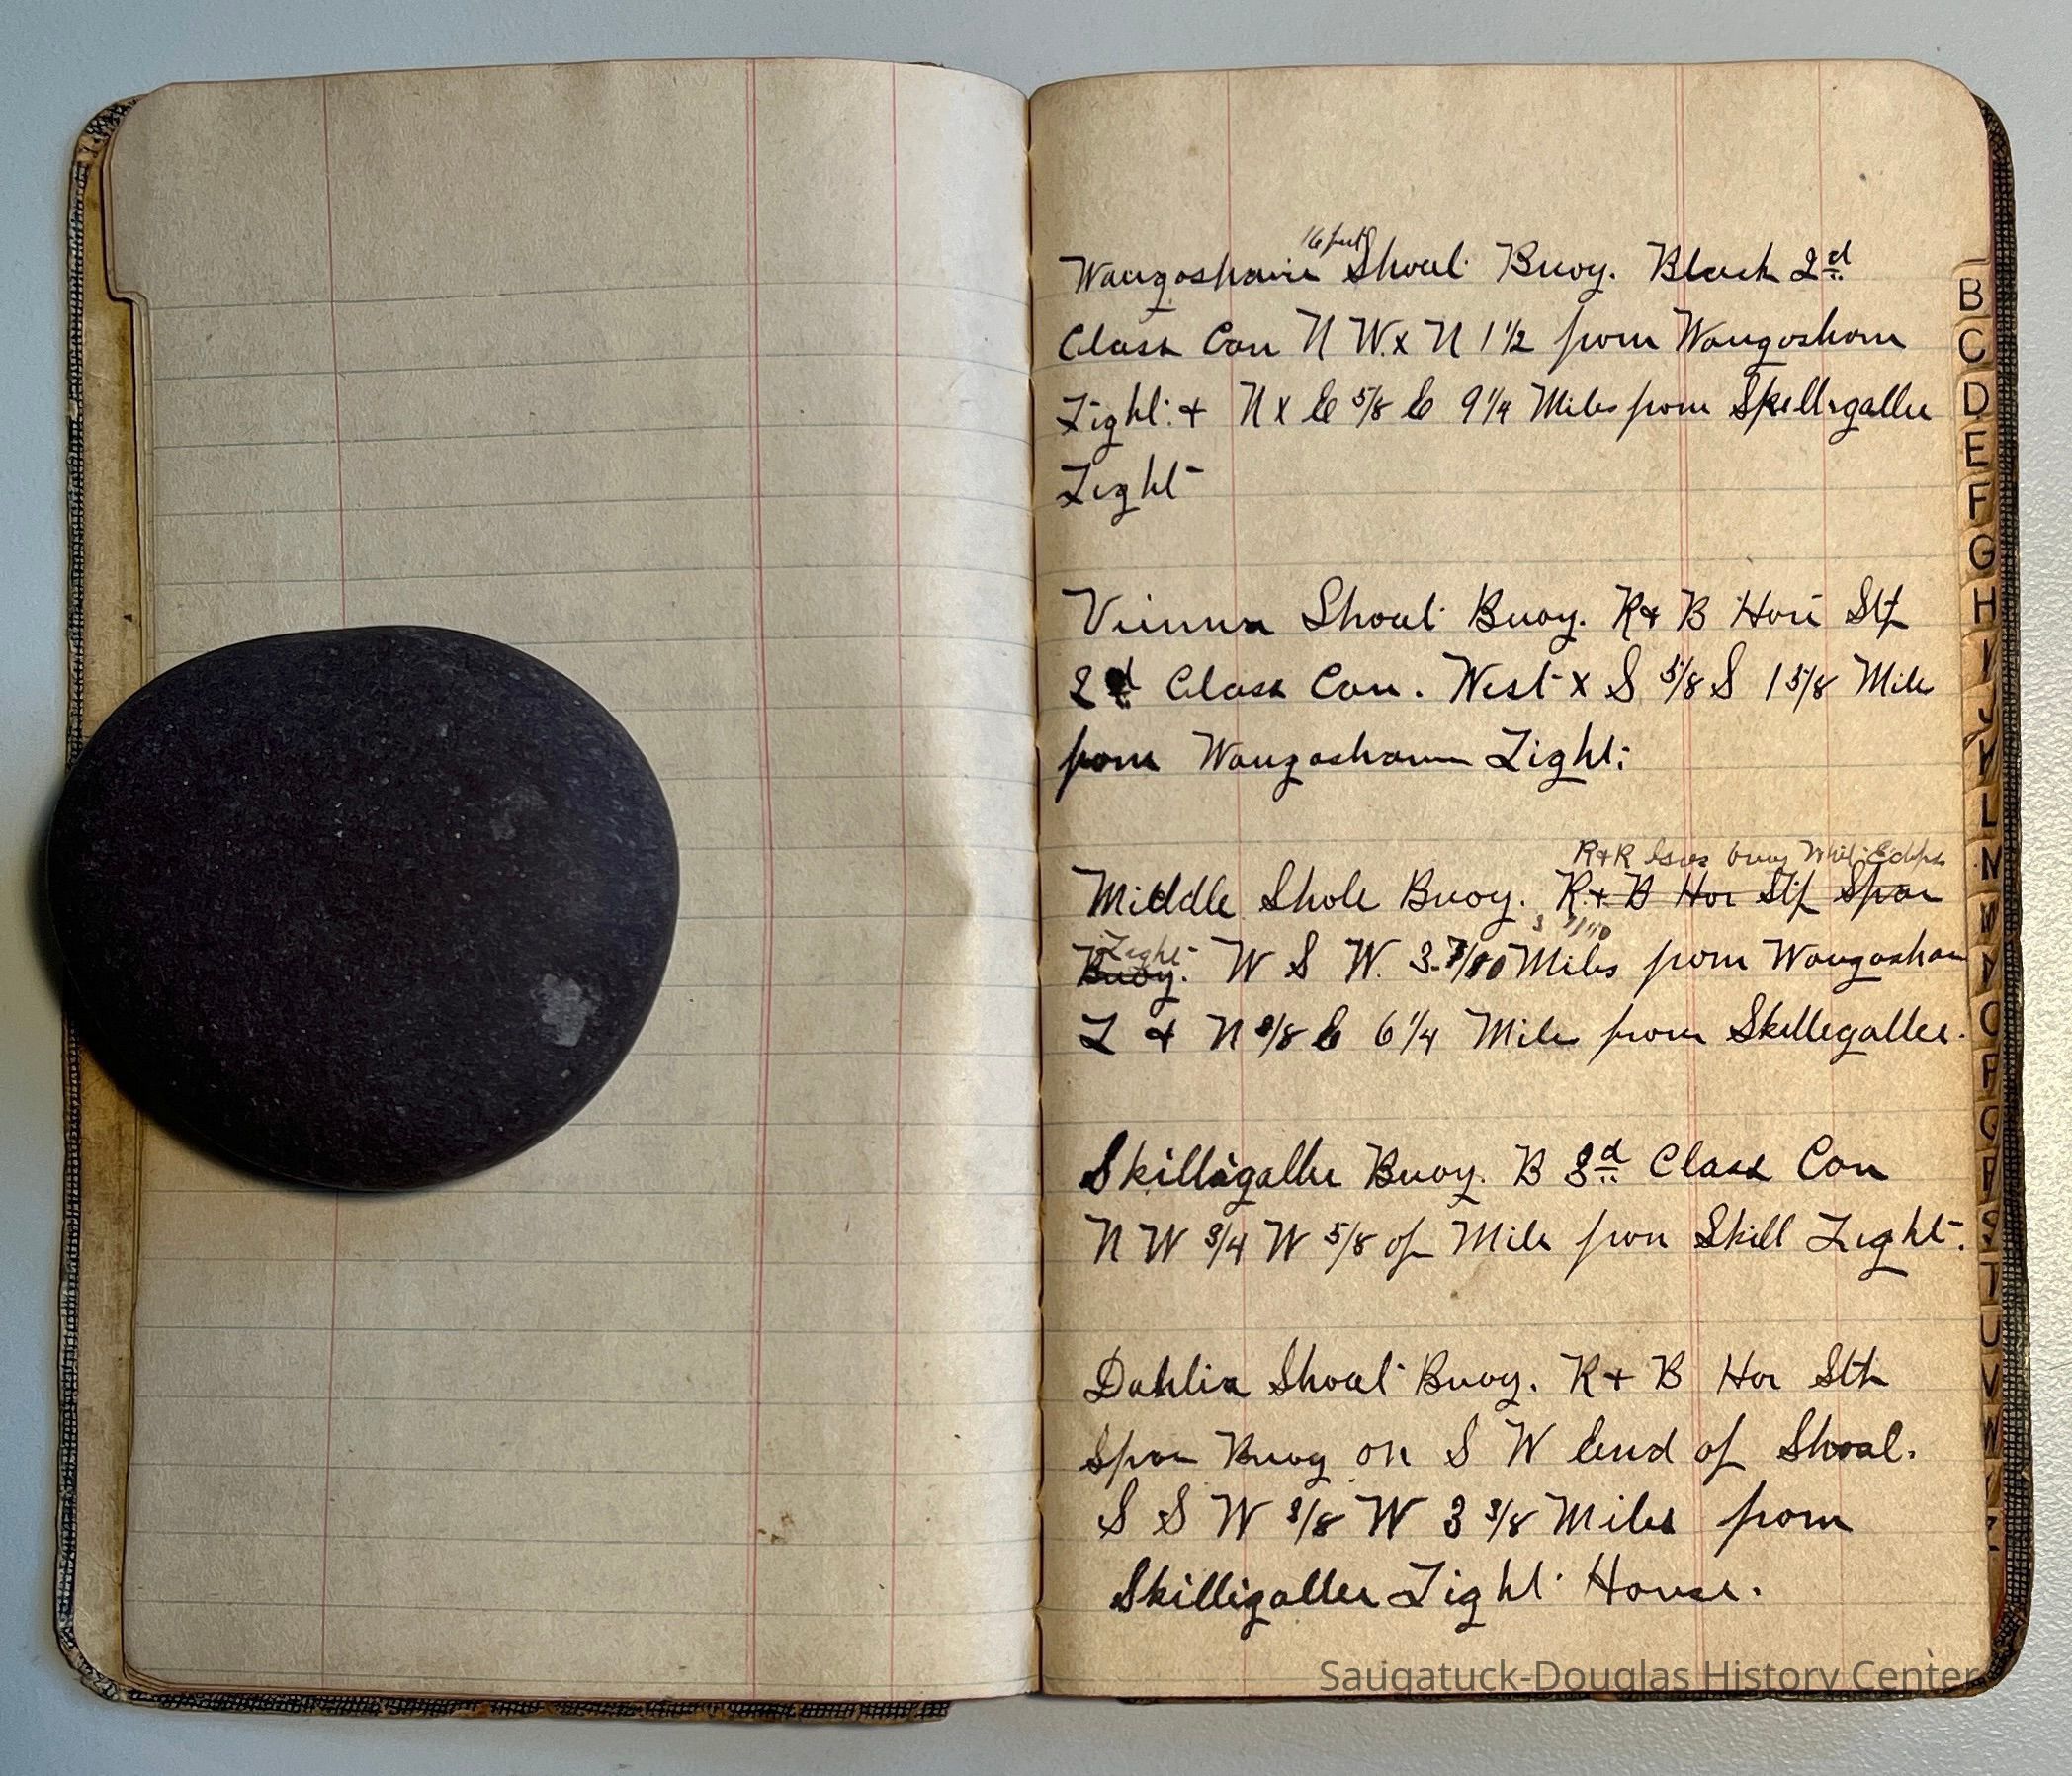 16 feet
Waugosharic Shoal Buoy. Black 2d
Class Can N W. x N 1 1/2 from Waugosham
Light. + N x E 5/8 E 9 1/4 Miles from Skelligallee
Light
Vienna Shoal Buoy. R + B Hori Stp
2d Class Can. West x S 5/8 S 1 5/8 Mile
from Waugosham Light.
R+R buoy
Middle Shole Buoy. R + B Hor Stp Spar
Light
Buoy. W S W. Miles from Waugosham
L + N 3/8 E 6 1/4 Mile from Skillegallee.
Skilligallee Buoy. B 3d Class Can
N W 3/4 W 5/8 of Mile from Skill Light.
Dahlia Shoal Buoy. R + B Hor Stp
Spar Buoy on S W End of Shoal.
S S W 3/8 W 3 3/8 Miles from
Skilligallee Light House.
B
C
D
E
F
G
H
I
J
K
L
M
N
O
P
Q
R
S
T
U
V
W
Saugatuck-Douglas History Center